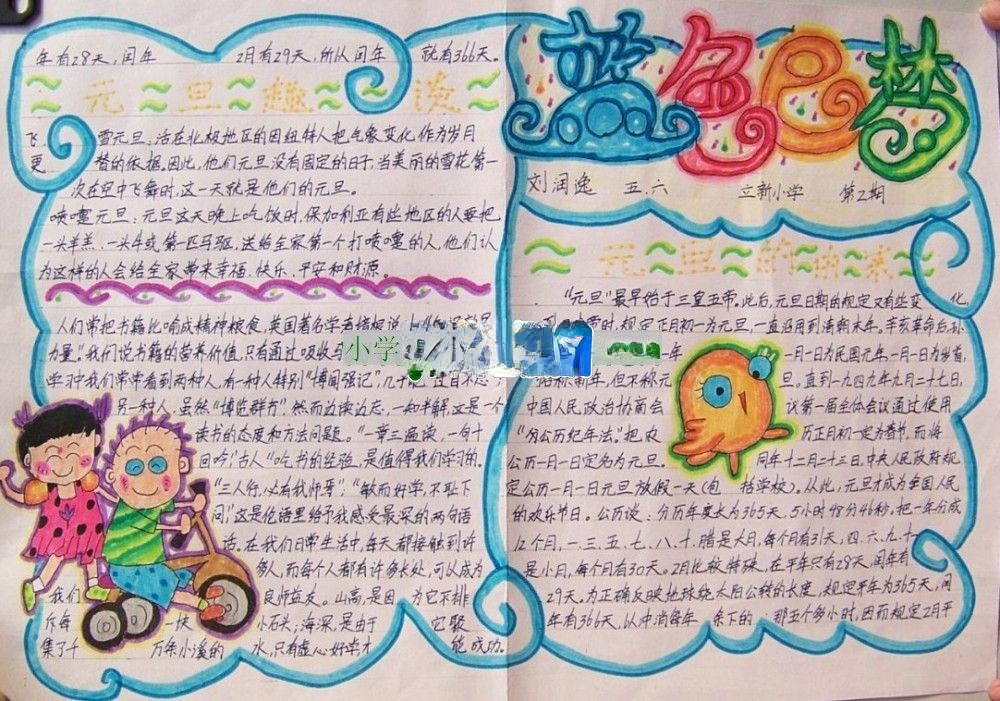 蓝色的梦
刘润逸 五.六 立新小学 第2期
元旦的由来
"元旦"最早始于三皇五帝。此后,元旦日期的规定又有些变化,
时,规定正月初一为元旦,一直沿用到清朝末年。辛亥革命后,孙
一年 一月一日为民国元年一月一日为岁首,
称新年,但不称元旦。直到一九四九年九月二十七日,
中国人民政治协商会议第一届全体会议通过使用
"公历纪年法",把农历正月初一定为春节,而将
公历一月一日定名为元旦。同年十二月二十三日,中央人民政府规
定公历一月一日元旦放假一天(包括学校)。从此,元旦才成为全国人民
的欢乐节日。公历说:分历年度长为365天,5小时48分46秒,把一年分成
12个月,一、三、五、七、八、十、腊是大月,每个月有31天,四、六、九、十一
是小月,每个月有30天。2月比较特殊,在平年只有28天,闰年有
29天。为正确反映地球绕太阳公转的长度,规定平年为365天,闰
年有366天,以冲消每年余下的那五个多小时,因而规定2月平
年有28天,闰年2月有29天,所以闰年就有366天。
元旦趣谈
飞雪元旦:活在北极地区的因纽特人把气象变化作为岁月
更替的依据。因此,他们元旦没有固定的日子,当美丽的雪花第一
次在空中飞舞时,这一天就是他们的元旦。
喷嚏元旦:元旦这天晚上吃饭时,保加利亚有些地区的人要把
一头羊羔、一头牛或第一匹马驱,送给全家第一个打喷嚏的人,他们认
为这样的人会给全家带来幸福、快乐、平安和财源。
人们常把书籍比喻成精神粮食,英国著名学者培根说
力量。"我们说书籍的营养价值,只有通过吸收
学习中我们常常看到两种人,有一种人特别"博闻强记",几乎
另一种人,虽然"博览群书",然而边读边忘,一知半解,这是一个
读书的态度和方法问题。"一章三遍读,一句十
回吟",古人"吃书"的经验,是值得我们学习的。
"三人行,必有我师焉","敏而好学,不耻下
问",这是伦语里给予我感受最深的两句语
话。在我们日常生活中,每天都接触到许
多人,而每个人都有许多长处,可以成为
我们良师益友。山高,是因为它不排
斥每一块小石头;海深,是由于它聚
集了千万条小溪的水,只有虚心好学,才能成功。
小学